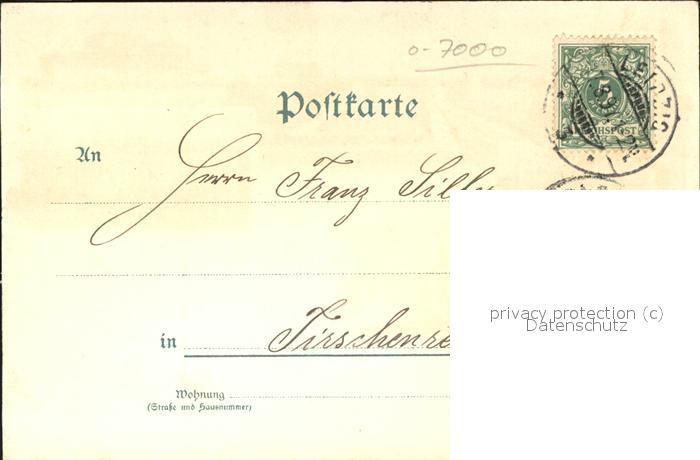 o-7000
5
REICHSPOST
LEIPZIG
Postkarte
An
Herrn Franz Silly
privacy protection (c)
Datenschutz
in Tirschenre
Wohnung
(Straße und Hausnummer)